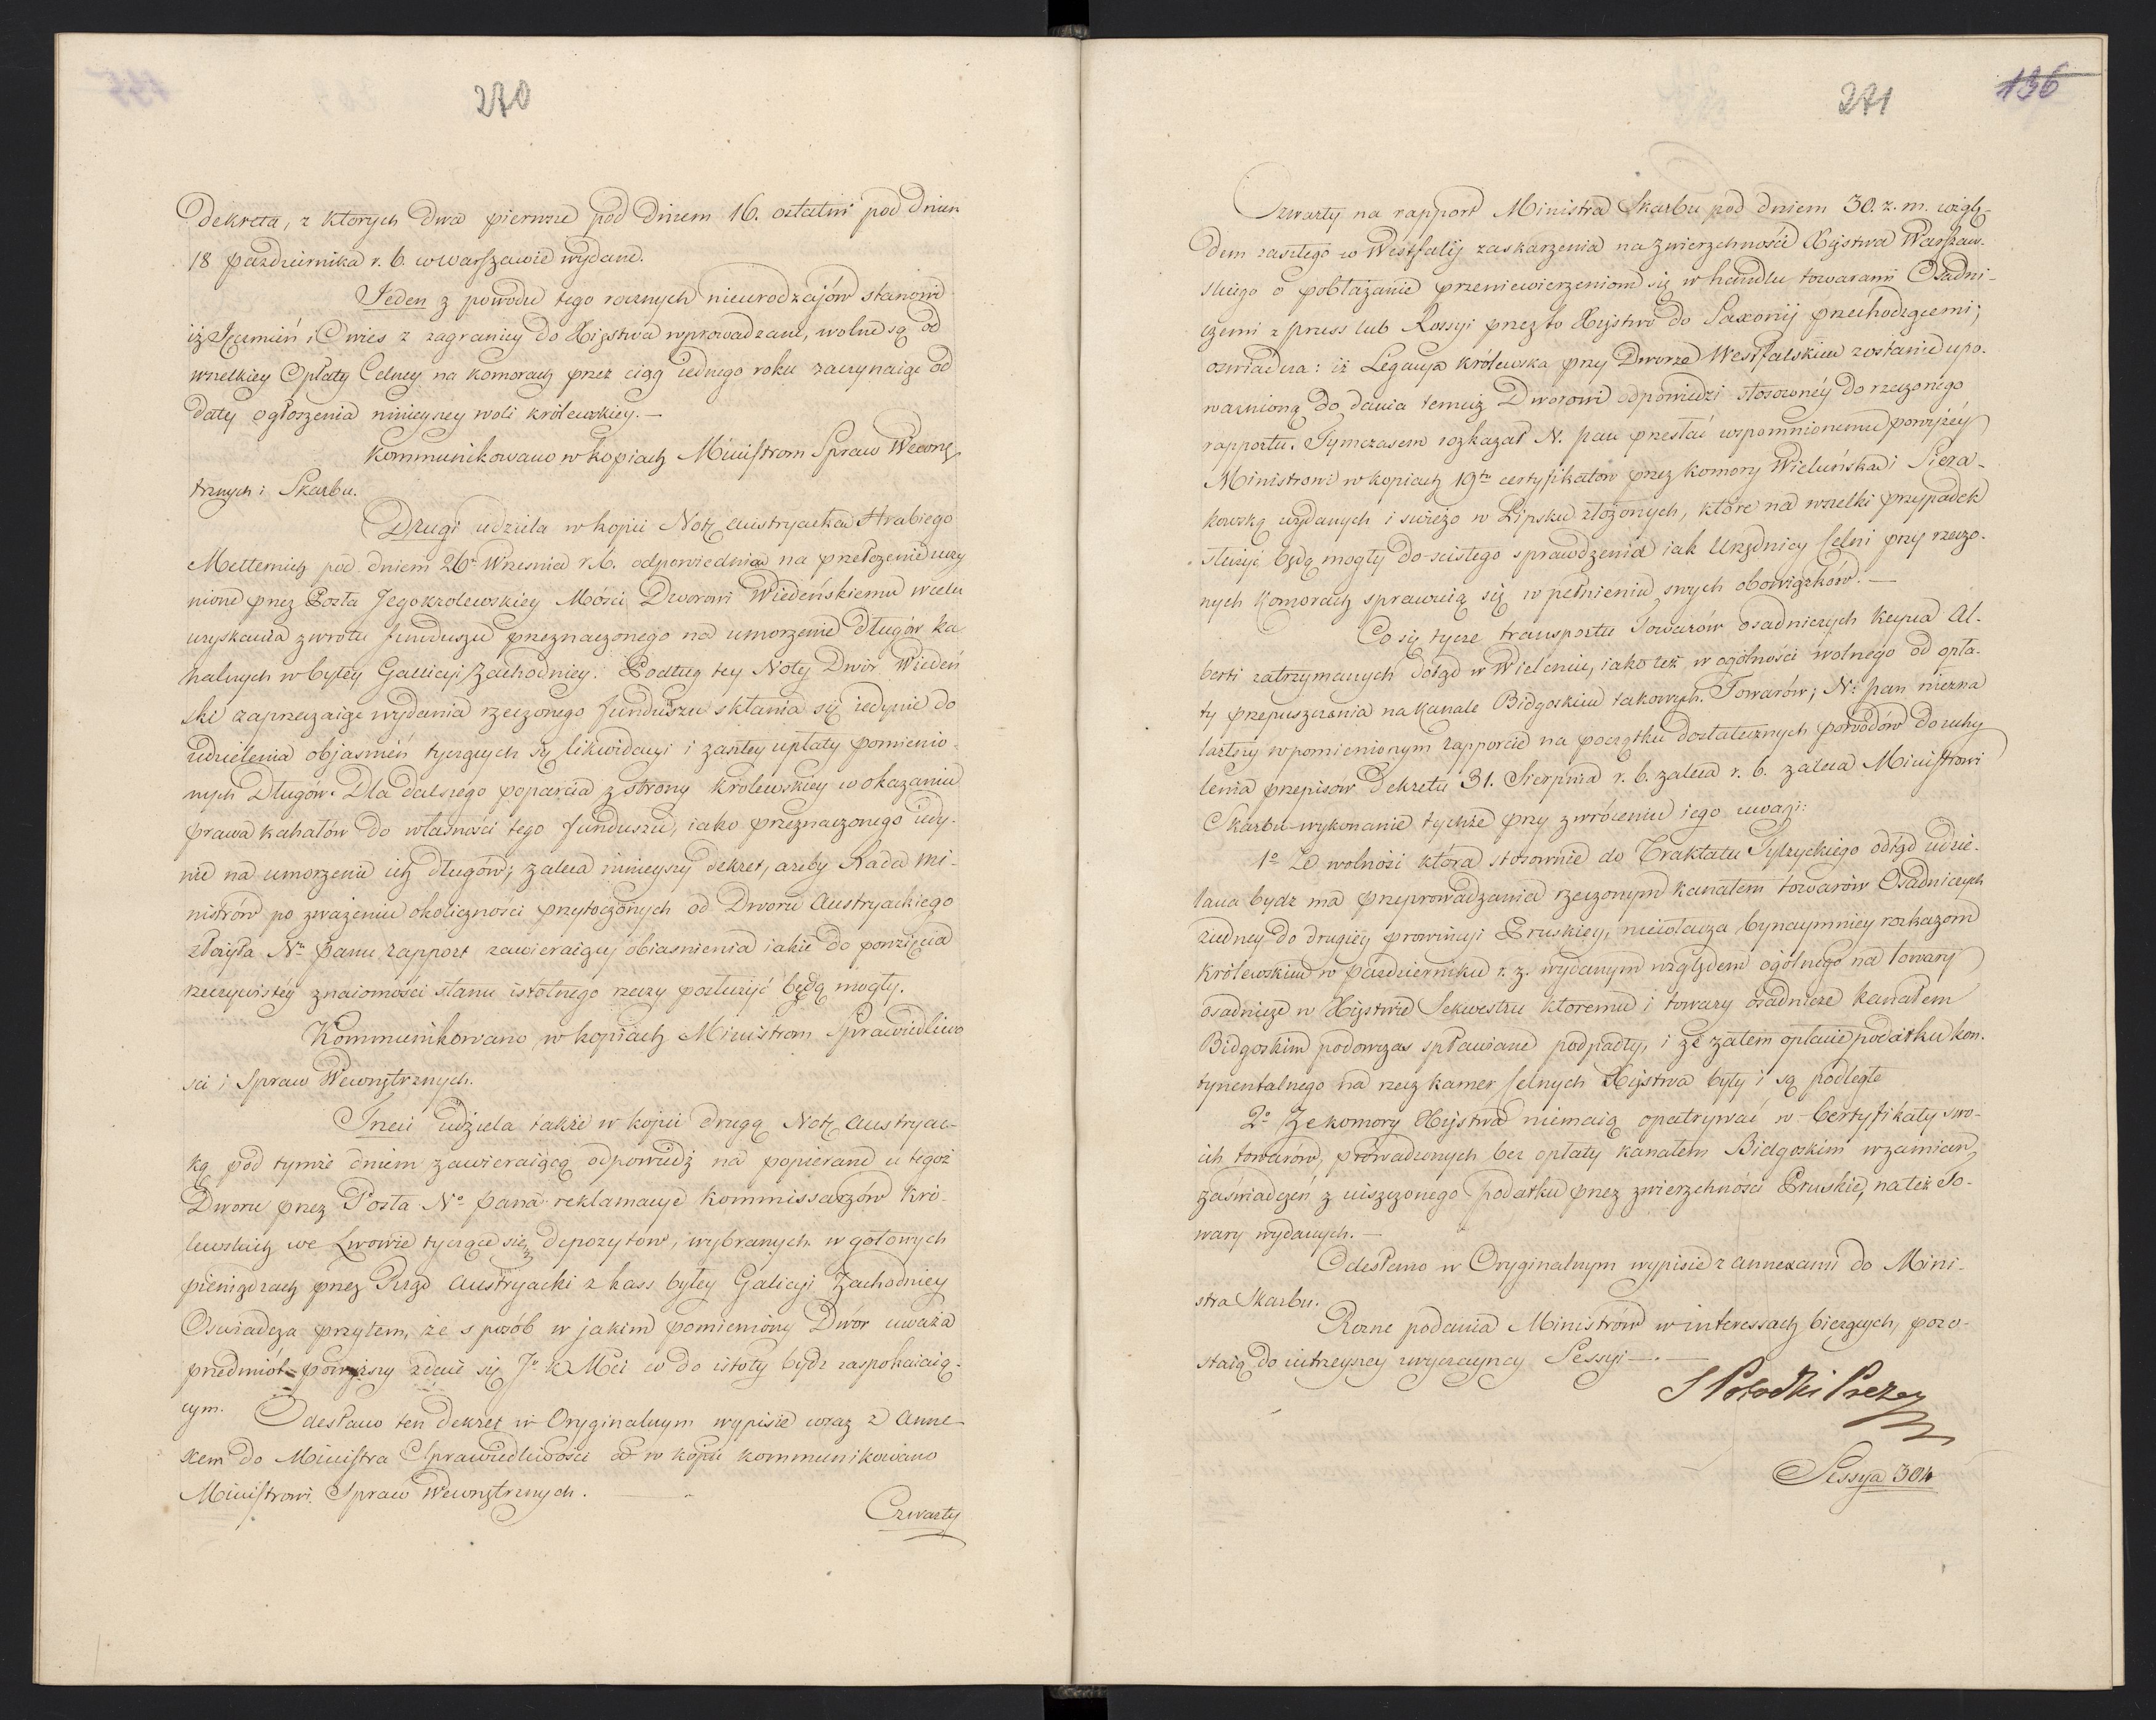 270
Dekreta, z ktorych dwa pierwsze pod dniem 16. ostatni pod dniem
18 października r. b. w Warszawie wydane.
Jeden z powodu tego rocznych nieurodzajów stanowi
iż Jęczmień i Owies z zagranicy do Xięstwa wprowadzane, wolne są od
wszelkiey Opłaty Celney na komorach przez ciąg iednego roku zaczynaiąc od
daty ogłoszenia ninieyszey woli królewskiey. —
Kommunikowano w kopiach Ministrom Spraw Wewnę-
trznych i Skarbu.
Drugi udziela w kopii Notę austryacką Hrabiego
Metternich pod dniem 26 Września r. b. odpowiednią na przełożenie uczy
nione przez Posła Jego krolewskiey Mości Dworowi Wiedeńskiemu wcelu
uzyskania zwrotu funduszu przeznaczonego na umorzenie długów ka-
halnych w byłey Galicyi Zachodniey. Podług tey Noty Dwór Wiedeń
ski zaprzeczaiąc wydania rzeczonego funduszu skłania się iedynie do
udzielenia objaśnień tyczących się likwidacyi i zaszłey upłaty pomienio-
nych Długów. Dla dalszego poparcia z strony królewskiey w okazaniu
prawa kahałów do własności tego funduszu, iako przeznaczonego iedy-
nie na umorzenie ich długów; zaleca ninieyszy dekret, ażeby Rada Mi-
nistrów po zważeniu okoliczności przytoczonych od Dworu Austryackiego
złożyła No. panu rapport zawieraiący obiaśnienia iakie do powzięcia
rzeczywistéy znaiomości stanu istotnego rzeczy posłużyć będą mogły.
Kommunikowano w kopiach Ministrom Sprawiedliwo
ści i Spraw Wewnętrznych.
Trzeci udziela także w kopii drugą Notę austryac-
ką pod tymże dniem zawieraiącą odpowiedź na popierane u tegoż
Dworu przez Posła No. pana reklamacye kommissarzów kró-
lewskich we Lwowie tyczące się depozytów, wybranych w gotowych
pieniądzach przez Rząd austryacki z kass byłey Galicyi Zachodniey
Oswiadcza przytem, że sposób w jakim pomieniony Dwór uważa
przedmiot powyższy zdaie się Jo. K Mci co do istoty bydź zaspokaiaią-
cym.
Odesłano ten dekret w Oryginalnym wypisie wraz z Anne-
xem do Ministra Sprawiedliwości a w kopii kommunikowano
Ministrowi Spraw Wewnętrznych.
Czwarty
271
136
Czwarty na rapport Ministra Skarbu pod dniem 30. z. m. wzglę-
dem zaszłego w Westfalij zaskarzenia na Zwierzchności Xięstwa Warszaw-
skiego o pobłażanie przeniewierzeniom się w handlu towarami Osadni-
czemi z Pruss lub Rossyi przez to Xięstwo do Saxonij przechodzącemi;
oswiadcza: iż Legacya królewska przy Dworze Westfalskim zostanie upo-
ważnioną do dania temuż Dworowi odpowiedzi stosownéy do rzeczonego
rapportu. Tymczasem rozkazał N. pan przesłać wspomnionemu powyżéy
Ministrowi w kopiach 19tu certyfikatów przez komory Wieluńską i Siera-
kowską wydanych i swiéżo w Lipsku złożonych, które na wszelki przypadek
służyć będą mogły do scisłego sprawdzenia iak Urzędnicy Celni przy rzeczo-
nych Komorach sprawuią się w pełnieniu swych obowiązków. —
Co się tycze transportu Towarów osadniczych kupca Al-
berti zatrzymanych dotąd w Wieleniu, iako też w ogólności wolnego od opła-
ty przepuszczania na kanale Bidgoskim takowych Towarów; No. pan niezna
lazłszy w pomienionym rapporcie na początku dostatecznych powodów do uchy
lenia przepisów dekretu 31. Sierpnia r. b. zaleca r. b. zaleca Ministrowi
Skarbu wykonanie tychże przy zwróceniu iego uwagi:
1o Że wolność która stosownie do Traktatu Tylżyckiego odtąd udzie-
lana bydz ma przeprowadzania rzeczonym kanałem towarów Osadniczych
z iedney do drugiey prowincyi Pruskiey, nieiotacza bynaymniey rozkazom
królewskim w październiku r. z. wydanym względem ogólnego na towary
osadnicze w Xięstwie Sekwestru któremu i towary osadnicze kanałem
Bidgoskim podowczas spławiane podpadły, i że zatem opłacie podatku kon-
tynentalnego na rzecz kamer Celnych Xięstwa były i są podległe
2o Że komory Xięstwa niemaią opatrywać w Certyfikaty swo-
ich towarów, prowadzonych bez opłaty kanałem Bidgoskim w zamian
zaświadczeń z uiszczonego podatku przez zwierzchności Pruskie, na też To-
wary wydanych. —
Odesłano w Oryginalnym wypisie z annexami do Mini-
stra Skarbu.
Rozne podania Ministrów w interessach bieżących, pozo-
staią do iutrzeyszey zwyczayney Sessyi —.—
S Potocki Prezes
Sessya 304